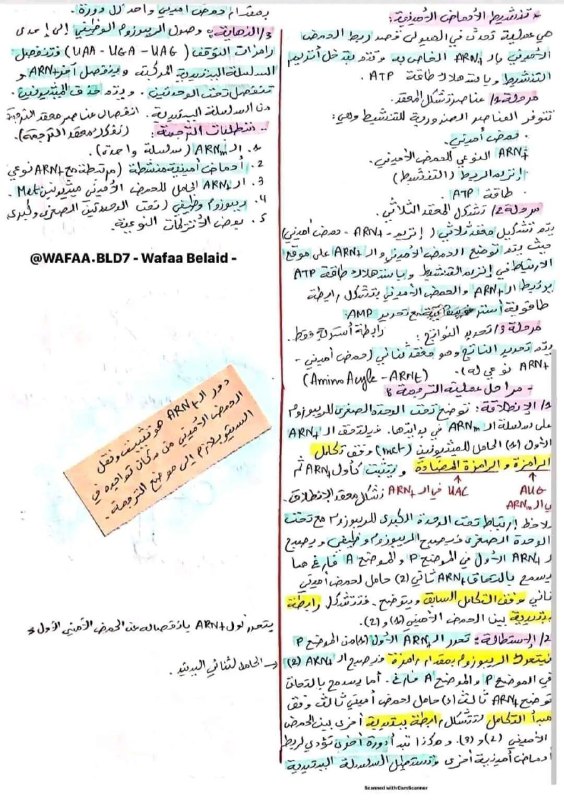 * تنشيط الأحماض الأمينية:
هي عملية تحدث في الهيولى قصد ربط الحمض
الأميني بالـ ARNt الخاص به وتتم بتدخل أنزيم
التنشيط وباستهلاك طاقة ATP
مرحلة 1/ عناصر تشكل المعقد.
تتوفر العناصر الضرورية للتنشيط وهي:
. حمض أميني.
. ARNt النوعي للحمض الأميني.
. إنزيم الربط (التنشيط)
. طاقة ATP
مرحلة 2/ تشكل المعقد الثلاثي.
يتم تشكيل معقد ثلاثي (إنزيم - ARNt - حمض أميني)
حيث يتم توضع الحمض الأميني والـ ARNt على موقع
الارتباط في إنزيم التنشيط وباستهلاك طاقة ATP
يرتبط الـ ARNt والحمض الأميني بتشكل رابطة
طاقوية أسترية مع تحرير AMP
مرحلة 3/ تحرير النواتج: رابطة أسترية فقط.
يتم تحرير الناتج وهو معقد ثنائي (حمض أميني -
ARNt نوعي له). (Amino Acyle - ARNt)
* مراحل عملية الترجمة:
1/ الانطلاقة: توضع تحت الوحدة الصغرى للريبوزوم
على سلسلة الـ ARNm في بدايتها. فيلتحق الـ ARNt
الأول (1) الحامل للميثيونين (met) وفق تكامل
الرامزة والرامزة المضادة ويتثبت كأول ARNt ثم
AUG في الـ ARNm UAC في الـ ARNt تشكل معقد الانطلاق
يلاحظ ارتباط تحت الوحدة الكبرى للريبوزوم مع تحت
الوحدة الصغرى فيصبح الريبوزوم وظيفي ويصبح
الـ ARNt الأول في الموضع P والموضع A فارغ مما
يسمح بالتحاق ARNt ثاني (2) حامل لحمض أميني
ثاني وفق التكامل السابق ويتوضع. فتتشكل رابطة
ببتيدية بين الحمض الأميني (1) و (2).
2/ الاستطالة: تحرر الـ ARNt الأول (1) من الموضع P
فيتحرك الريبوزوم بمقدار رامزة فيصبح الـ ARNt (2)
في الموضع P والموضع A فارغ. أما يسمح بالتحاق
توضع ARNt ثالث (3) حامل لحمض أميني ثالث وفق
مبدأ التكامل لتتشكل رابطة ببتيدية أخرى بين الحمض
الأميني (2) و (3). وهكذا تبدأ دورة أخرى تؤدي لربط
أحماض أمينية أخرى وتستطيل السلسلة الببتيدية
بمقدار حمض أميني واحد كل دورة.
3/ النهاية: وصول الريبوزوم الوظيفي إلى إحدى
رامزات التوقف (UAA - UGA - UAG) فتنفصل
السلسلة الببتيدية المركبة وينفصل آخر ARNt و
تنفصل تحت الوحدتين. ويتم حذف الميثيونين
من السلسلة الببتيدية. انفصال عناصر معقد الترجمة
- متطلبات الترجمة: (تفكك معقد الترجمة).
1. الـ ARNm (سلسلة واحدة).
2. أحماض أمينية منشطة (مرتبطة مع ARNt نوعي
3. الـ ARNt الحامل للحمض الأميني ميثيونين Met.
4. ريبوزوم وظيفي (تحت الوحدتين الصغرى وكبرى
5. بعض الأنزيمات النوعية.
@WAFAA.BLD7 - Wafaa Belaid -
دور الـ ARNt هو تثبيت ونقل
الحمض الأميني من مكان تواجده في
السيتوبلازم إلى موضع الترجمة.
يتحرر أول ARNt بانفصاله عن الحمض الأميني الأول
الحامل لثنائي الببتيد.
Scanned with CamScanner